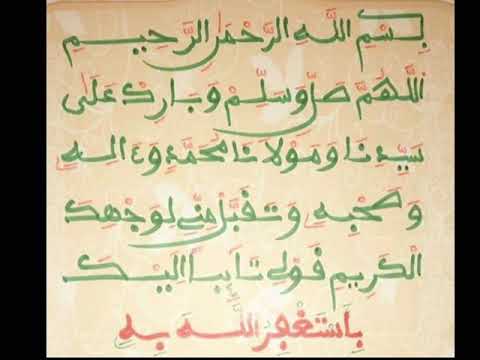 بِسْمِ اللَّهِ الرَّحْمَٰنِ الرَّحِيمِ
اللَّهُمَّ صَلِّ وَسَلِّمْ وَبَارِكْ عَلَىٰ
سَيِّدِنَا وَمَوْلَانَا مُحَمَّدٍ وَءَالِهِ
وَصَحْبِهِ وَتَقَبَّلْ مِنِّي لِوَجْهِكَ
الْكَرِيمِ قَوْلِي تَايِبًا إِلَيْكَ
بِاسْتَغْفِرُ اللَّهَ بِهِ